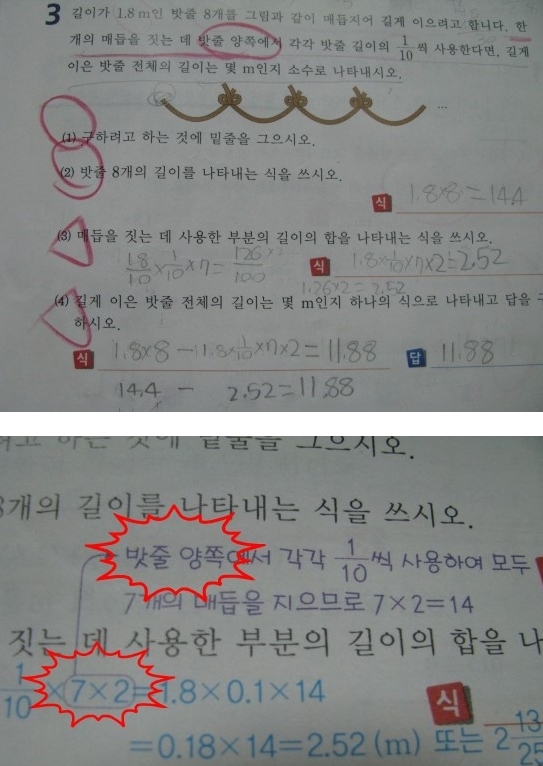 3 길이가 1.8 m인 밧줄 8개를 그림과 같이 매듭지어 길게 이으려고 합니다. 한
개의 매듭을 짓는 데 밧줄 양쪽에서 각각 밧줄 길이의 1/10씩 사용한다면, 길게
이은 밧줄 전체의 길이는 몇 m인지 소수로 나타내시오.
...
(1) 구하려고 하는 것에 밑줄을 그으시오.
(2) 밧줄 8개의 길이를 나타내는 식을 쓰시오.
식 1.8×8=14.4
(3) 매듭을 짓는 데 사용한 부분의 길이의 합을 나타내는 식을 쓰시오.
18/10×1/10×7=126/100×2
식 1.8×1/10×7×2=2.52
1.26×2=2.52
(4) 길게 이은 밧줄 전체의 길이는 몇 m인지 하나의 식으로 나타내고 답을 구
하시오.
식 1.8×8-1.8×1/10×7×2=11.88 답 11.88
14.4 - 2.52=11.88
려고 하는 것에 밑줄을 그으시오.
8개의 길이를 나타내는 식을 쓰시오.
밧줄 양쪽에서 각각 1/10씩 사용하여 모두
7개의 매듭을 지으므로 7×2=14
짓는 데 사용한 부분의 길이의 합을 나
1/10×7×2=1.8×0.1×14
식
=0.18×14=2.52(m) 또는 2 13/25